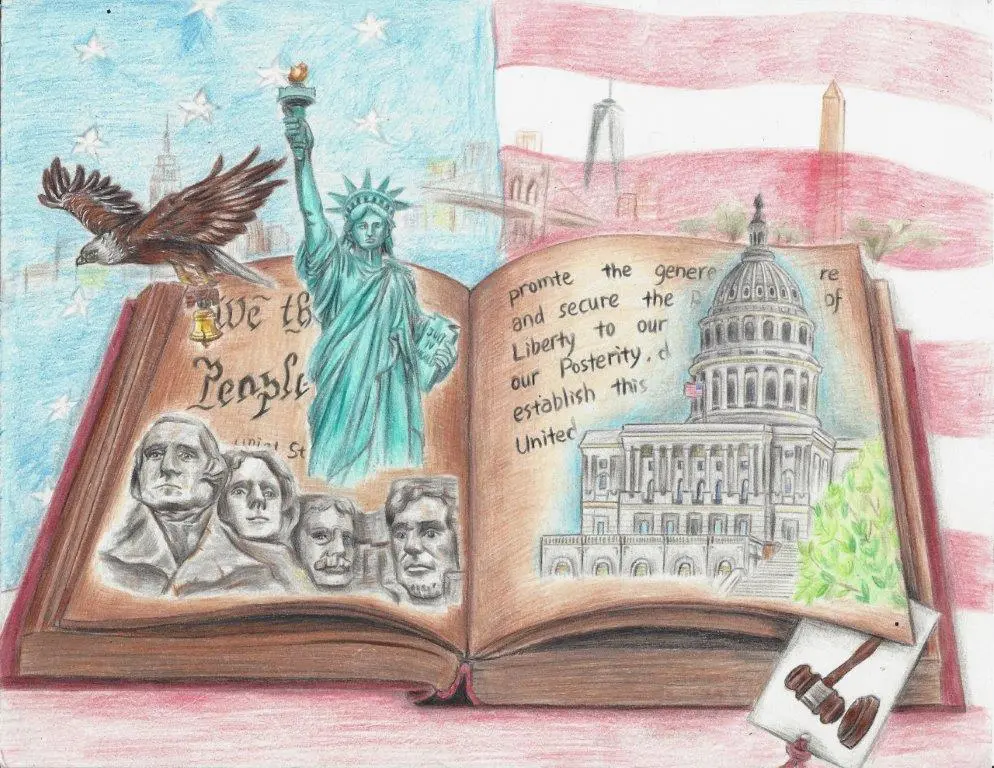 We th
People
St
promte the genere re
and secure the of
Liberty to our
our Posterity, d
establish this
United